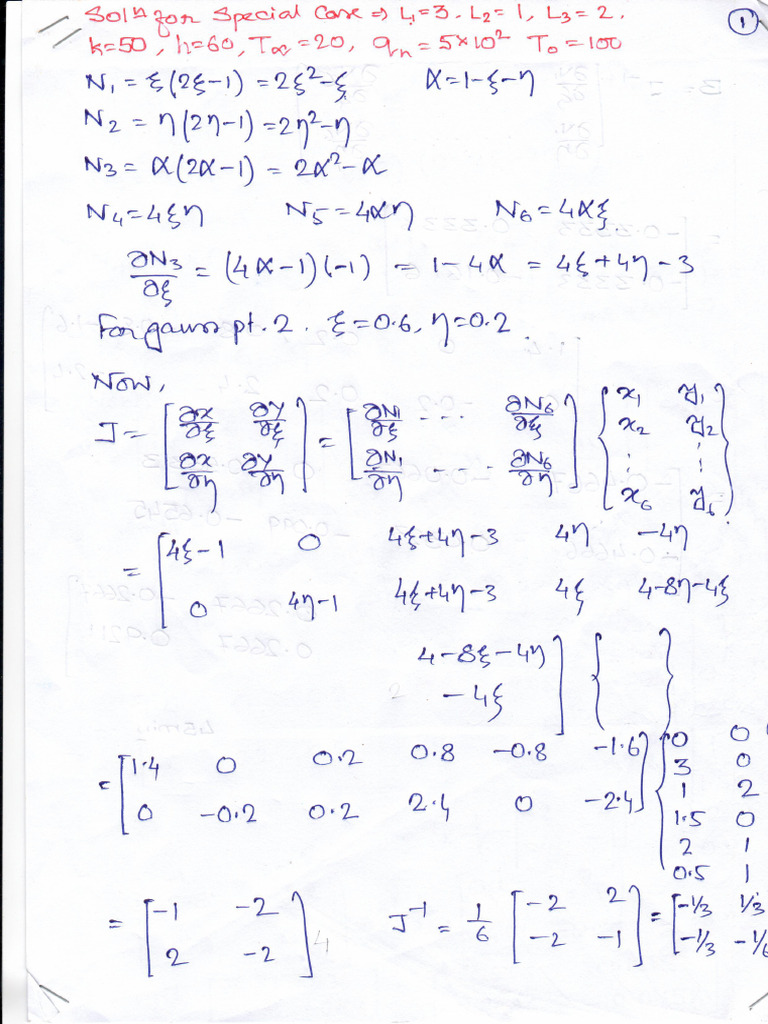 1
Soln for Special Case ⇒ L₁=3, L₂=1, L₃=2,
k=50, h=60, T∞=20, qn=5×10² T₀=100
N₁ = ξ(2ξ-1) = 2ξ²-ξ α=1-ξ-η
N₂ = η(2η-1) = 2η²-η
N₃ = α(2α-1) = 2α²-α
N₄=4ξη N₅=4αη N₆=4αξ
∂N₃/∂ξ = (4α-1)(-1) = 1-4α = 4ξ+4η-3
For gauss pt. 2. ξ=0.6, η=0.2.
Now,
J = [∂x/∂ξ ∂y/∂ξ; ∂x/∂η ∂y/∂η] = [∂N₁/∂ξ ... ∂N₆/∂ξ; ∂N₁/∂η ... ∂N₆/∂η] {x₁ y₁; x₂ y₂; ⋮ ⋮; x₆ y₆}
= [4ξ-1 0 4ξ+4η-3 4η -4η
0 4η-1 4ξ+4η-3 4ξ 4-8η-4ξ
4-8ξ-4η
-4ξ] { }
= [1.4 0 0.2 0.8 -0.8 -1.6; 0 -0.2 0.2 2.4 0 -2.4] {0 0; 3 0; 1 2; 1.5 0; 2 1; 0.5 1
= [-1 -2; 2 -2] J⁻¹ = 1/6 [-2 2; -2 -1] = [-1/3 1/3; -1/3 -1/6